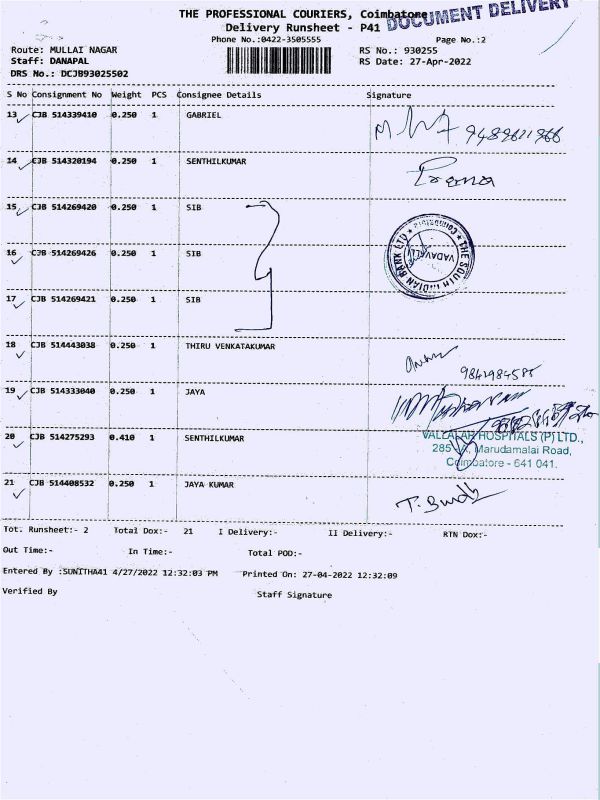 THE PROFESSIONAL COURIERS, Coimbatore
DOCUMENT DELIVERY
Delivery Runsheet - P41
Phone No.:0422-3505555 Page No.:2
Route: MULLAI NAGAR RS No.: 930255
Staff: DANAPAL RS Date: 27-Apr-2022
DRS No.: DCJB93025502
S No Consignment No Weight PCS Consignee Details Signature
13 CJB 514339410 0.250 1 GABRIEL
14 CJB 514320194 0.250 1 SENTHILKUMAR Prema
15 CJB 514269420 0.250 1 SIB
16 CJB 514269426 0.250 1 SIB
17 CJB 514269421 0.250 1 SIB
THE SOUTH INDIAN BANK LTD
Coimbatore
VADAVALLI
18 CJB 514443038 0.250 1 THIRU VENKATAKUMAR
9842984585
19 CJB 514333040 0.250 1 JAYA
20 CJB 514275293 0.410 1 SENTHILKUMAR
VALLALAR HOSPITALS (P) LTD.,
Marudamalai Road,
Coimbatore - 641 041.
21 CJB 514408532 0.250 1 JAYA KUMAR
Tot. Runsheet:- 2 Total Dox:- 21 I Delivery:- II Delivery:- RTN Dox:-
Out Time:- In Time:- Total POD:-
Entered By :SUNITHA41 4/27/2022 12:32:03 PM Printed On: 27-04-2022 12:32:09
Verified By Staff Signature